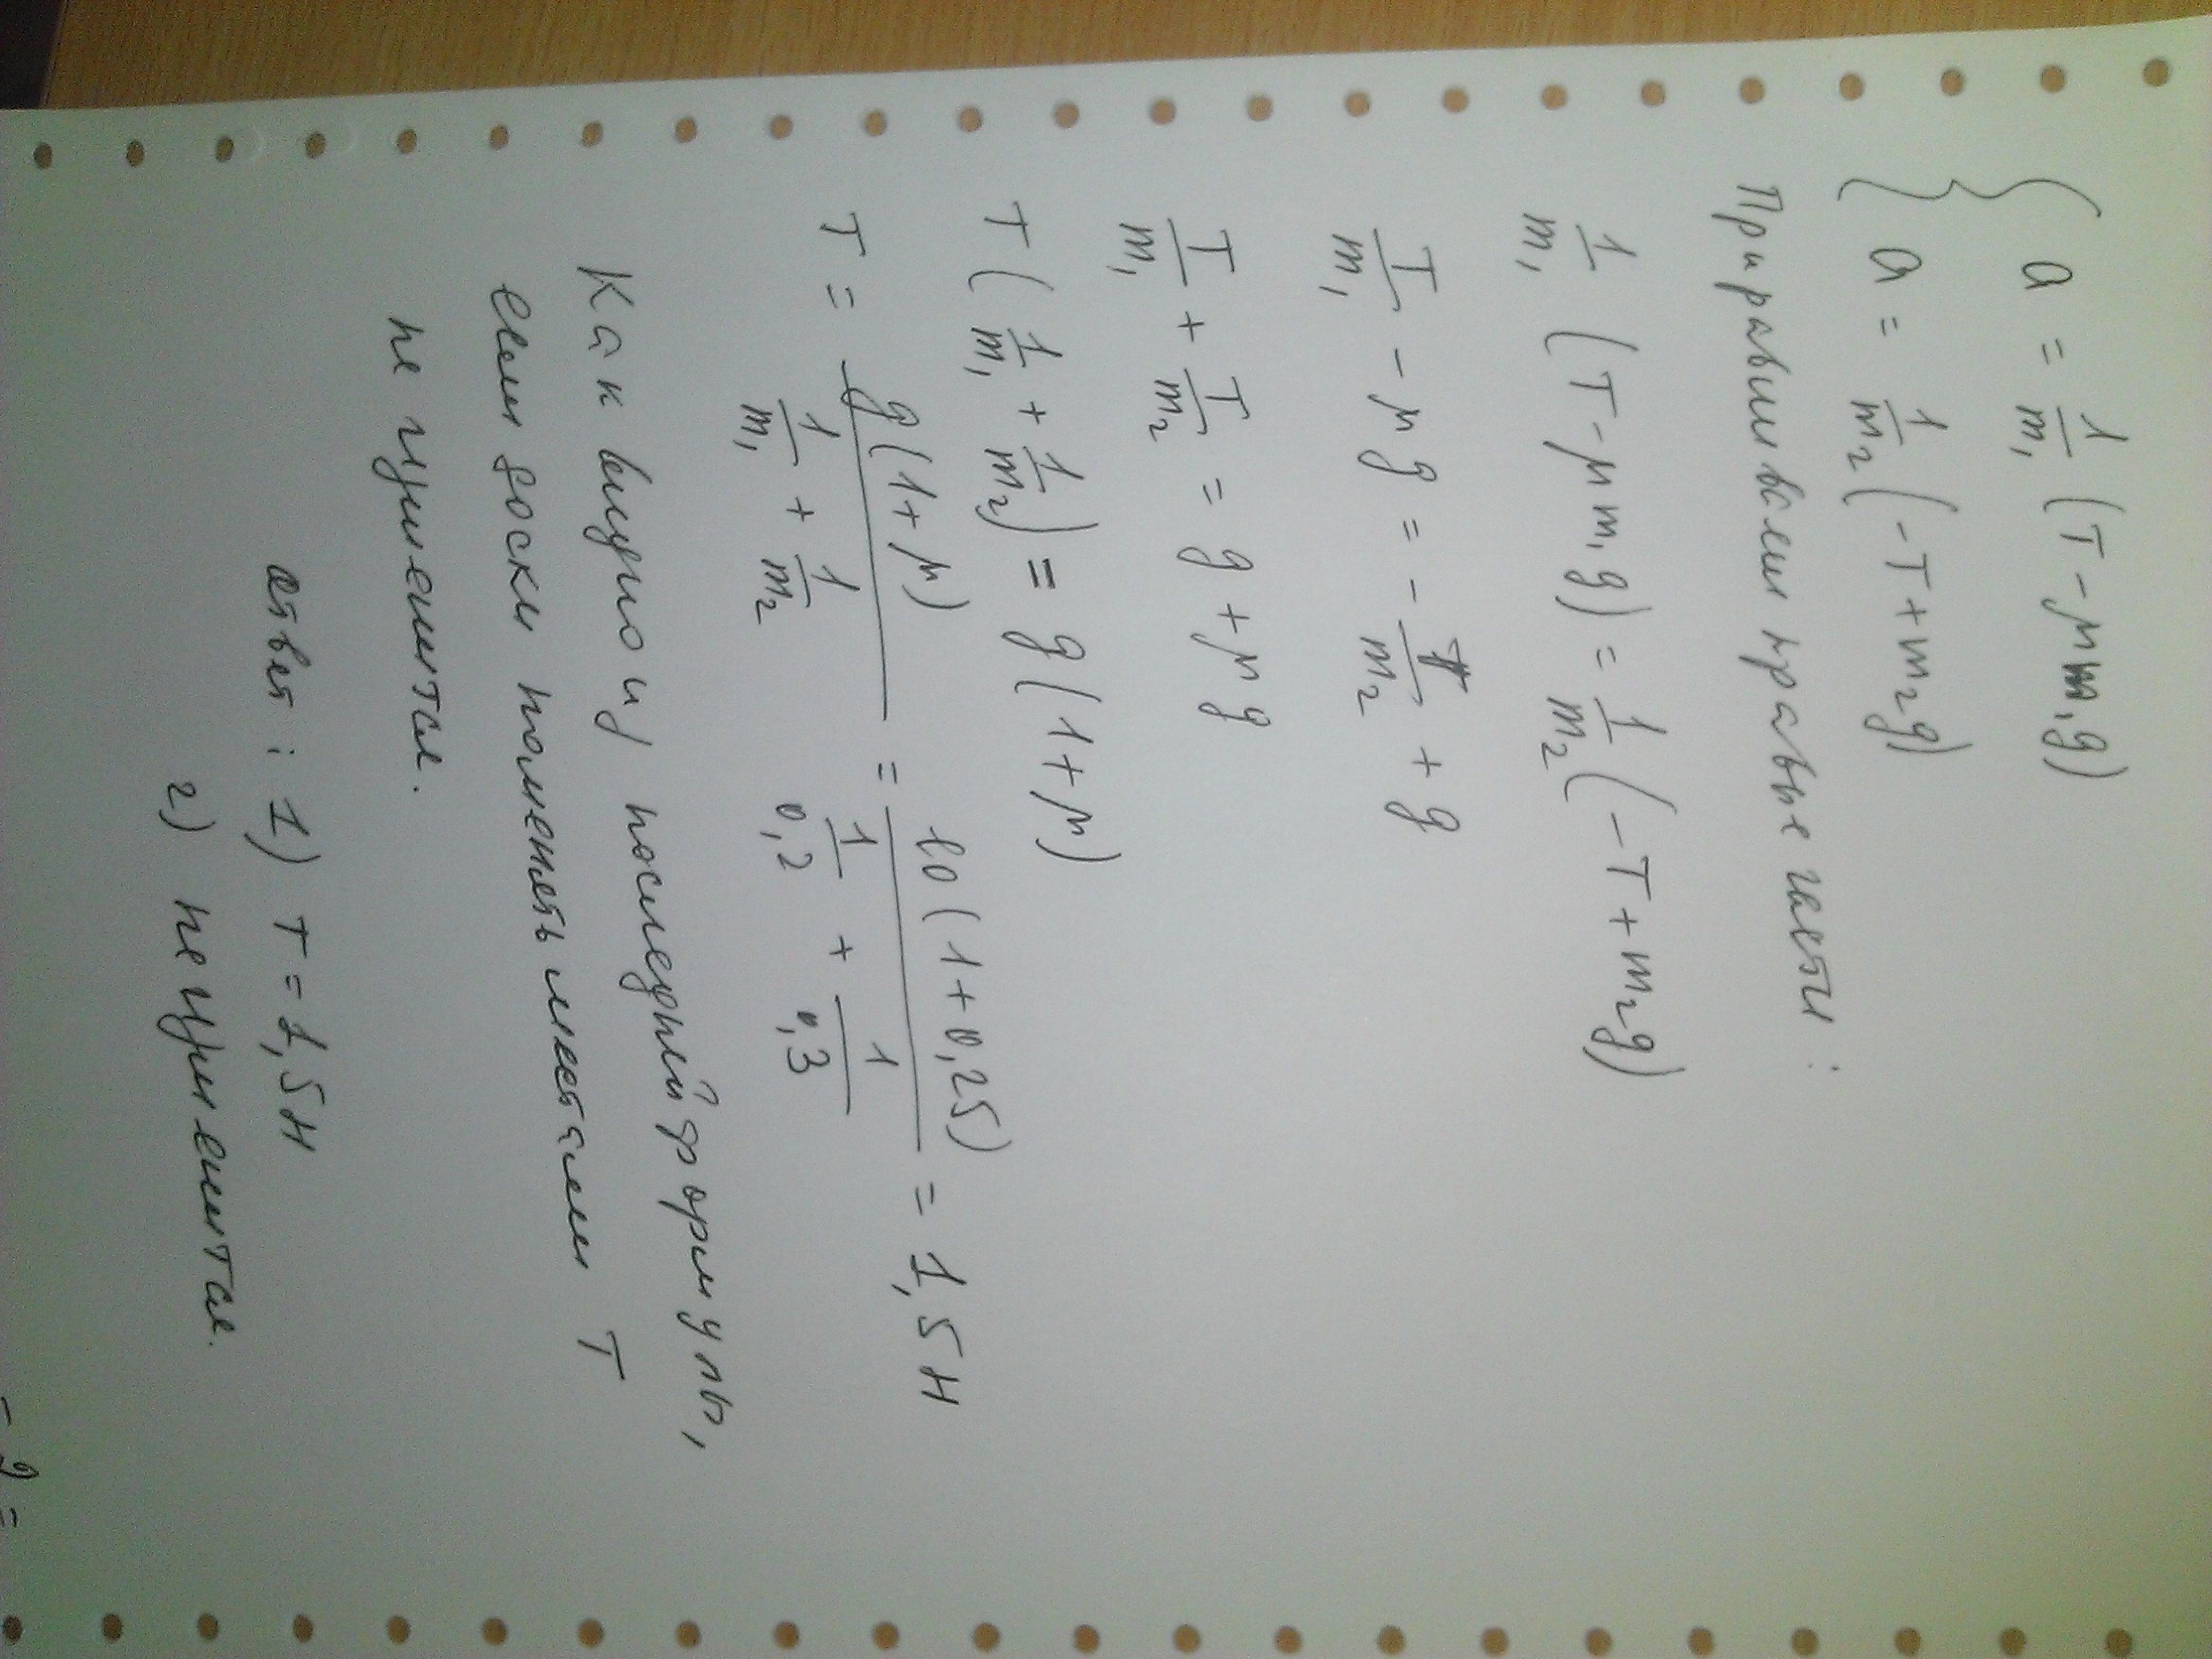 a = 1/m₁ (T - μm₁g)
a = 1/m₂ (-T + m₂g)
Приравниваем правые части:
1/m₁ (T - μm₁g) = 1/m₂ (-T + m₂g)
T/m₁ - μg = - T/m₂ + g
T/m₁ + T/m₂ = g + μg
T (1/m₁ + 1/m₂) = g (1 + μ)
T = g(1+μ) / (1/m₁ + 1/m₂) = 10(1+0,25) / (1/0,2 + 1/0,3) = 1,5 Н
Как видно из последней формулы,
если доски поменять местами T
не изменится.
ответ: 1) T = 1,5 Н
2) не изменится.
- 2 =